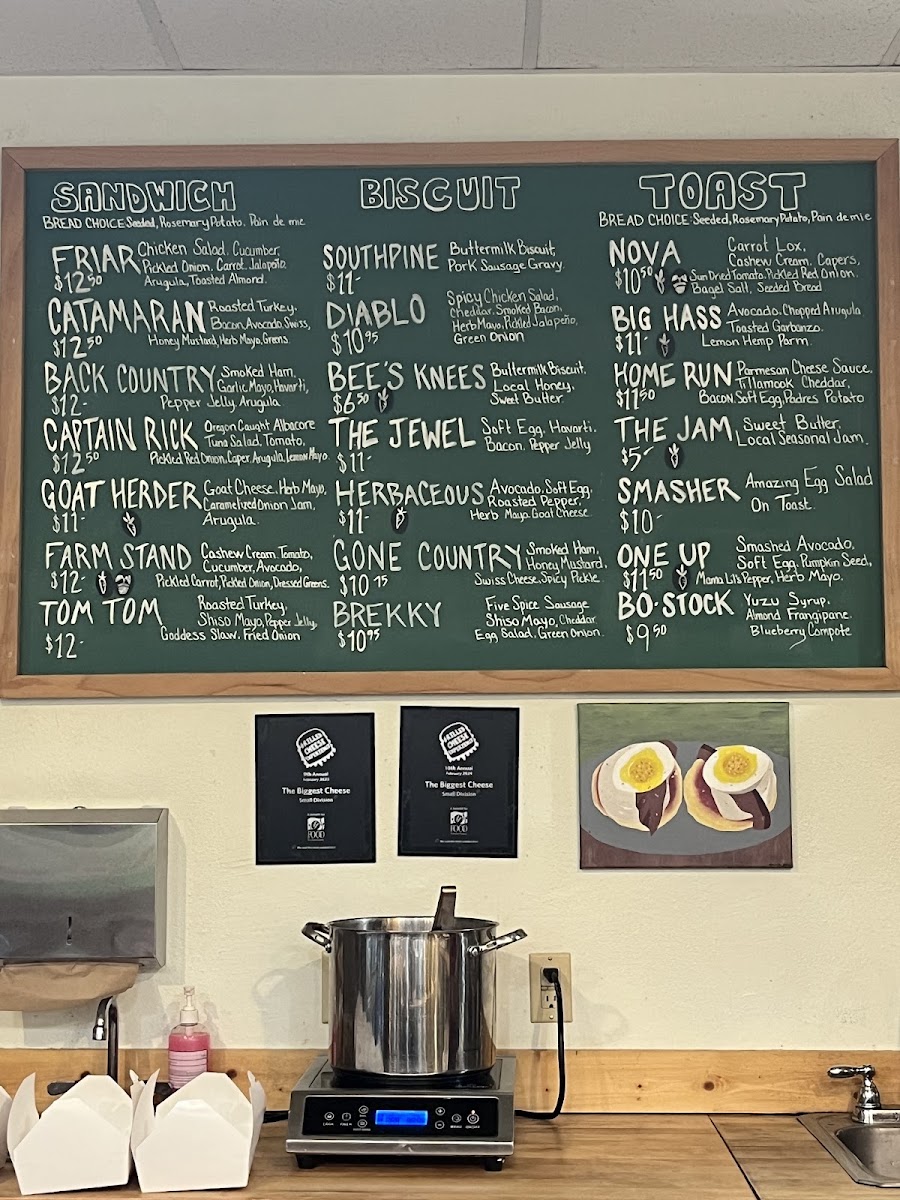 SANDWICH
BREAD CHOICE: Seeded, Rosemary Potato, Pain de mie
FRIAR Chicken Salad, Cucumber,
Pickled Onion, Carrot, Jalapeño,
$12.50 Arugula, Toasted Almond.
CATAMARAN Roasted Turkey,
Bacon, Avocado, Swiss,
$12.50 Honey Mustard, Herb Mayo, Greens.
BACK COUNTRY Smoked Ham,
Garlic Mayo, Havarti,
$12- Pepper Jelly, Arugula
CAPTAIN RICK Oregon Caught Albacore
Tuna Salad, Tomato,
$12.50 Pickled Red Onion, Caper, Arugula, Lemon Mayo.
GOAT HERDER Goat Cheese, Herb Mayo,
Caramelized Onion Jam,
$11- Arugula.
FARM STAND Cashew Cream, Tomato,
Cucumber, Avocado,
$12- Pickled Carrot, Pickled Onion, Dressed Greens.
TOM TOM Roasted Turkey,
Shiso Mayo, Pepper Jelly,
$12- Goddess Slaw, Fried Onion
BISCUIT
SOUTHPINE Buttermilk Biscuit,
$11- Pork Sausage Gravy.
DIABLO Spicy Chicken Salad,
Cheddar, Smoked Bacon,
$10.95 Herb Mayo, Pickled Jalapeño,
Green Onion
BEE'S KNEES Buttermilk Biscuit,
Local Honey,
$6.50 Sweet Butter.
THE JEWEL Soft Egg, Havarti,
$11- Bacon, Pepper Jelly
HERBACEOUS Avocado, Soft Egg,
Roasted Pepper,
$11- Herb Mayo, Goat Cheese.
GONE COUNTRY Smoked Ham,
Honey Mustard,
$10.75 Swiss Cheese, Spicy Pickle.
BREKKY Five Spice Sausage
Shiso Mayo, Cheddar
$10.95 Egg Salad, Green Onion.
TOAST
BREAD CHOICE: Seeded, Rosemary Potato, Pain de mie
NOVA Carrot Lox,
Cashew Cream, Capers,
$10.50 Sun Dried Tomato, Pickled Red Onion.
Bagel Salt, Seeded Bread
BIG HASS Avocado, Chopped Arugula
Toasted Garbanzo.
$11- Lemon Hemp Parm.
HOME RUN Parmesan Cheese Sauce,
Tillamook Cheddar,
$11.50 Bacon, Soft Egg, Padres Potato
THE JAM Sweet Butter,
$5- Local Seasonal Jam.
SMASHER Amazing Egg Salad
$10- On Toast.
ONE UP Smashed Avocado,
Soft Egg, Pumpkin Seed,
$11.50 Mama Lil's Pepper, Herb Mayo.
BO-STOCK Yuzu Syrup,
Almond Frangipane.
$9.50 Blueberry Compote
GRILLED
CHEESE
The Biggest Cheese
Small Division
FOOD
GRILLED
CHEESE
10th Annual
February 2024
The Biggest Cheese
Small Division
FOOD